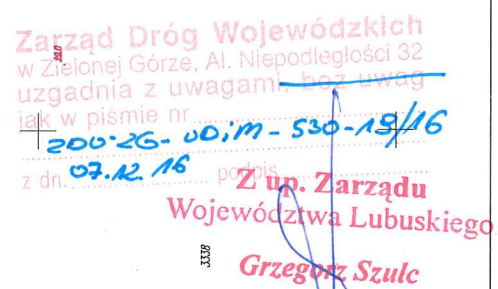 Zarząd Dróg Wojewódzkich
w Zielonej Górze, Al. Niepodległości 32
uzgadnia z uwagami, bez uwag
jak w piśmie nr
ZDW-ZG-UDiM-530-19/16
z dn. 07.12.16 podpis
Z up. Zarządu
Województwa Lubuskiego
3338
Grzegorz Szulc